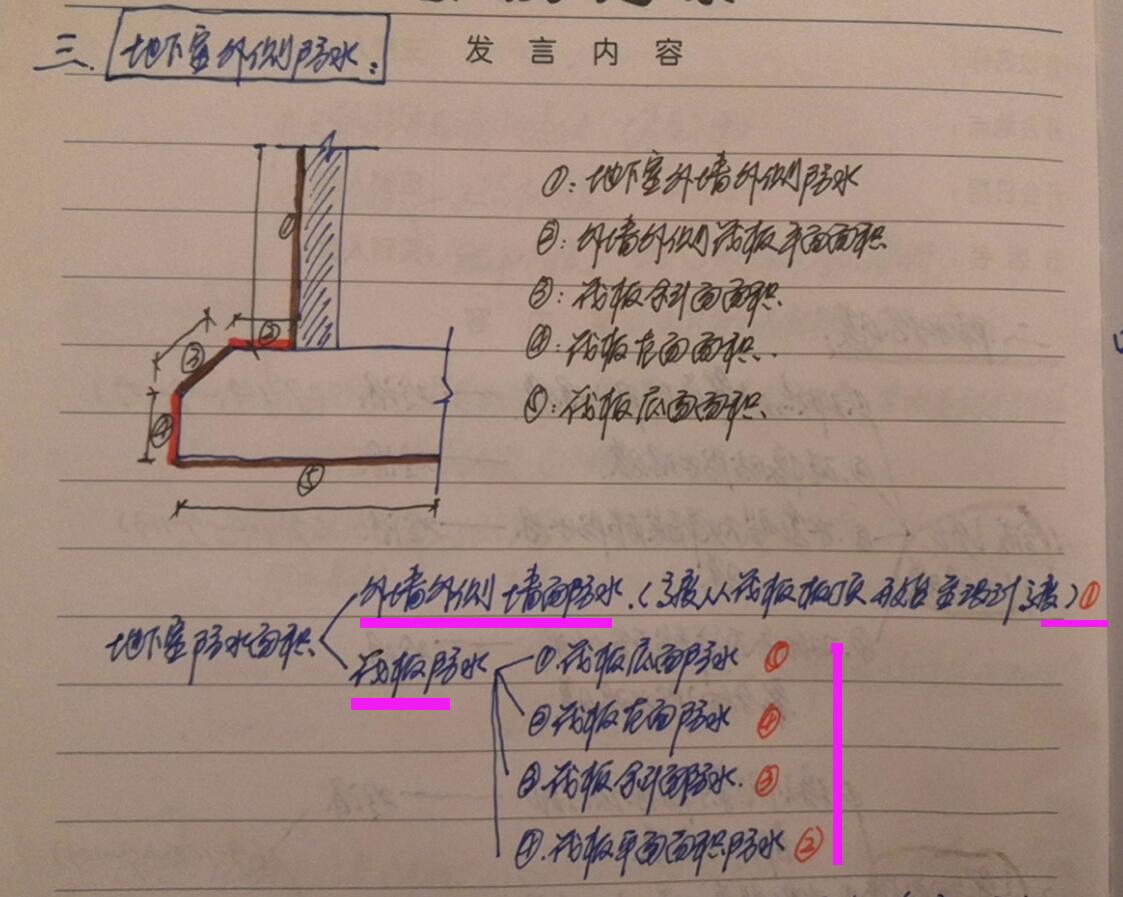 三. 地下室外侧防水:
发言内容
①: 地下室外墙外侧防水
②: 外墙外侧筏板平面面积
③: 筏板斜面面积.
④: 筏板直面面积.
⑤: 筏板底面面积.
①
②
③
④
⑤
外墙外侧墙面防水.(高度从筏板板顶 高度)①
地下室防水面积
筏板防水
①.筏板底面防水 ⑤
②筏板直面防水 ④
③.筏板斜面防水. ③
④.筏板平面面积防水 ②